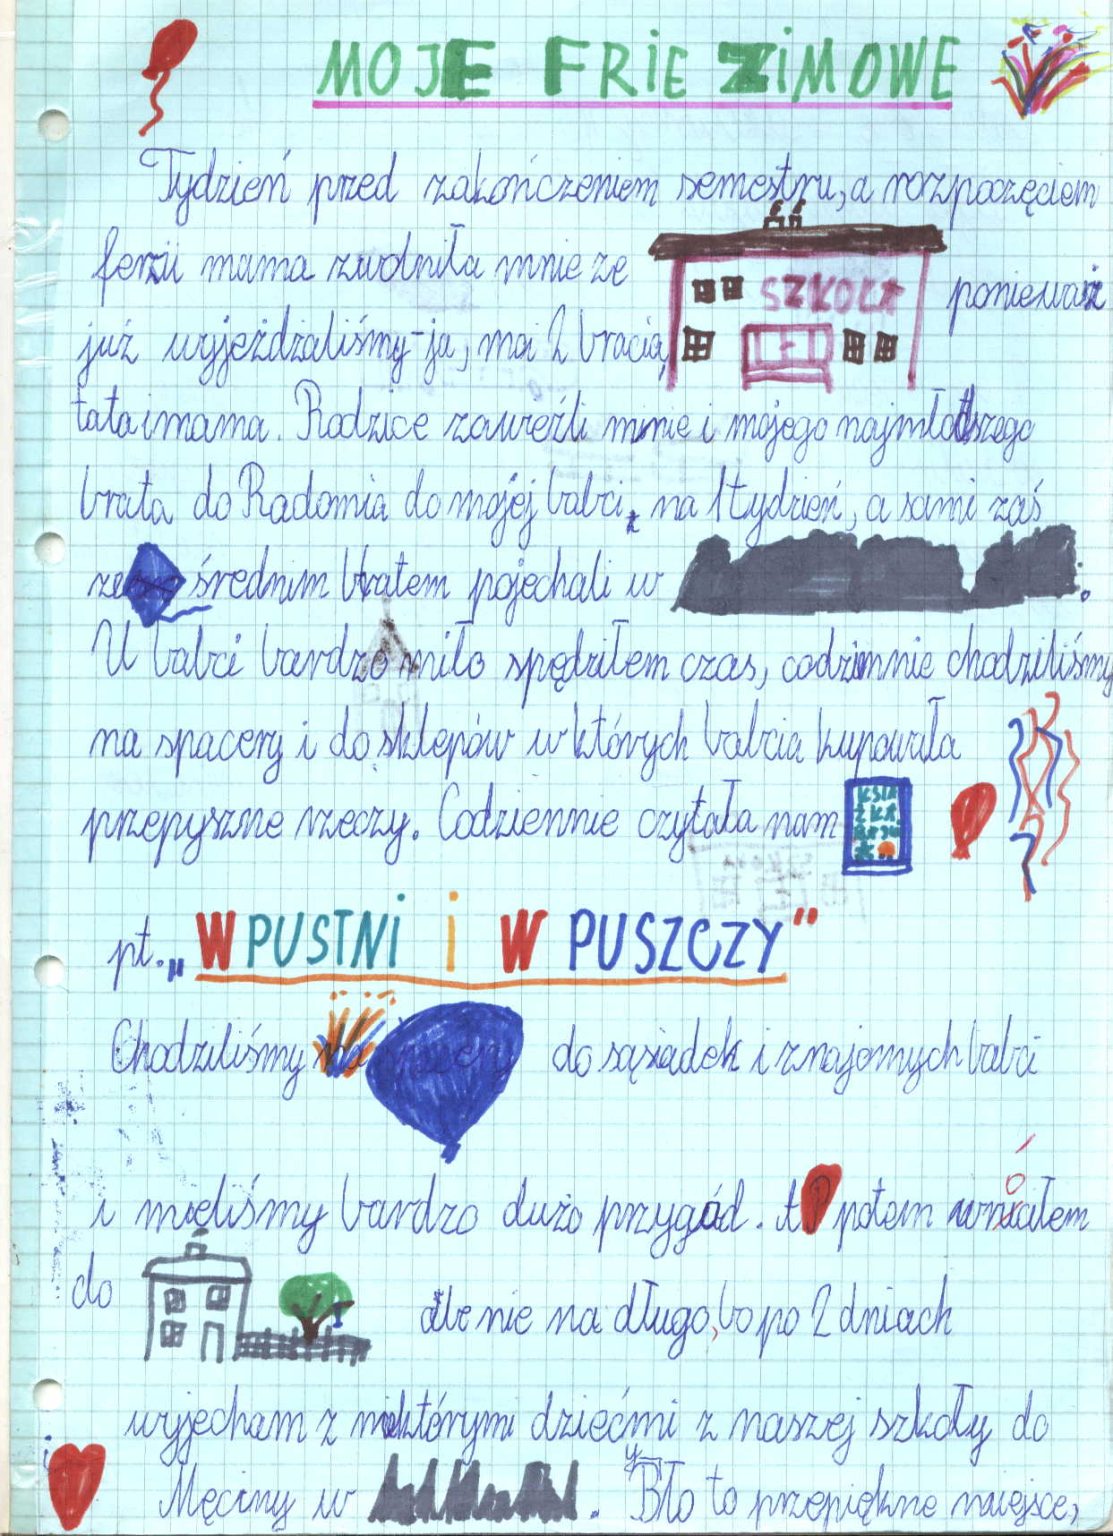 MOJE FRIE ZIMOWE
Tydzień przed zakończeniem semestru, a rozpoczęciem
ferii mama zwolniła mnie ze SZKOŁA ponieważ
już wyjeżdzaliśmy-ja, moi 2 bracia,
tata i mama. Rodzice zawieźli mnie i mojego najmłodszego
brata do Radomia do mojej babci, na 1 tydzień, a sami zaś
ze średnim bratem pojechali w .
U babci bardzo miło spędziłem czas, codziennie chodziliśmy
na spacery i do sklepów w których babcia kupowała
przepyszne rzeczy. Codziennie czytała nam
pt. „W PUSTNI I W PUSZCZY"
Chodziliśmy do sąsiadek i znajomych babci
i mieliśmy bardzo dużo przygód. A potem wróciałem
do ale nie na długo, bo po 2 dniach
wyjecham z niektórymi dziećmi z naszej szkoły do
Męciny w . Było to przepiękne miejsce,